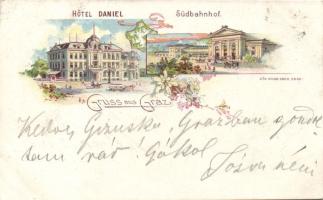 HÔTEL DANIEL
Südbahnhof.
Gruss aus Graz.
Kedves Gizuska, Grazban gondol
tam rád! Csókol
néni